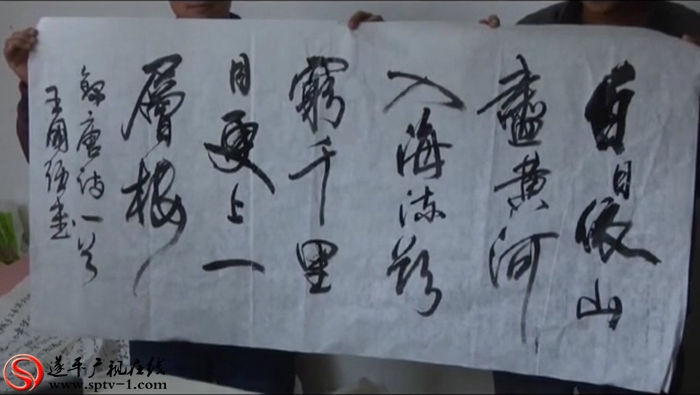 白日依山
盡黄河
入海流欲
窮千里
目更上一
層楼
錄唐诗一首
王國强书
遂平广视在线
www.sptv-1.com